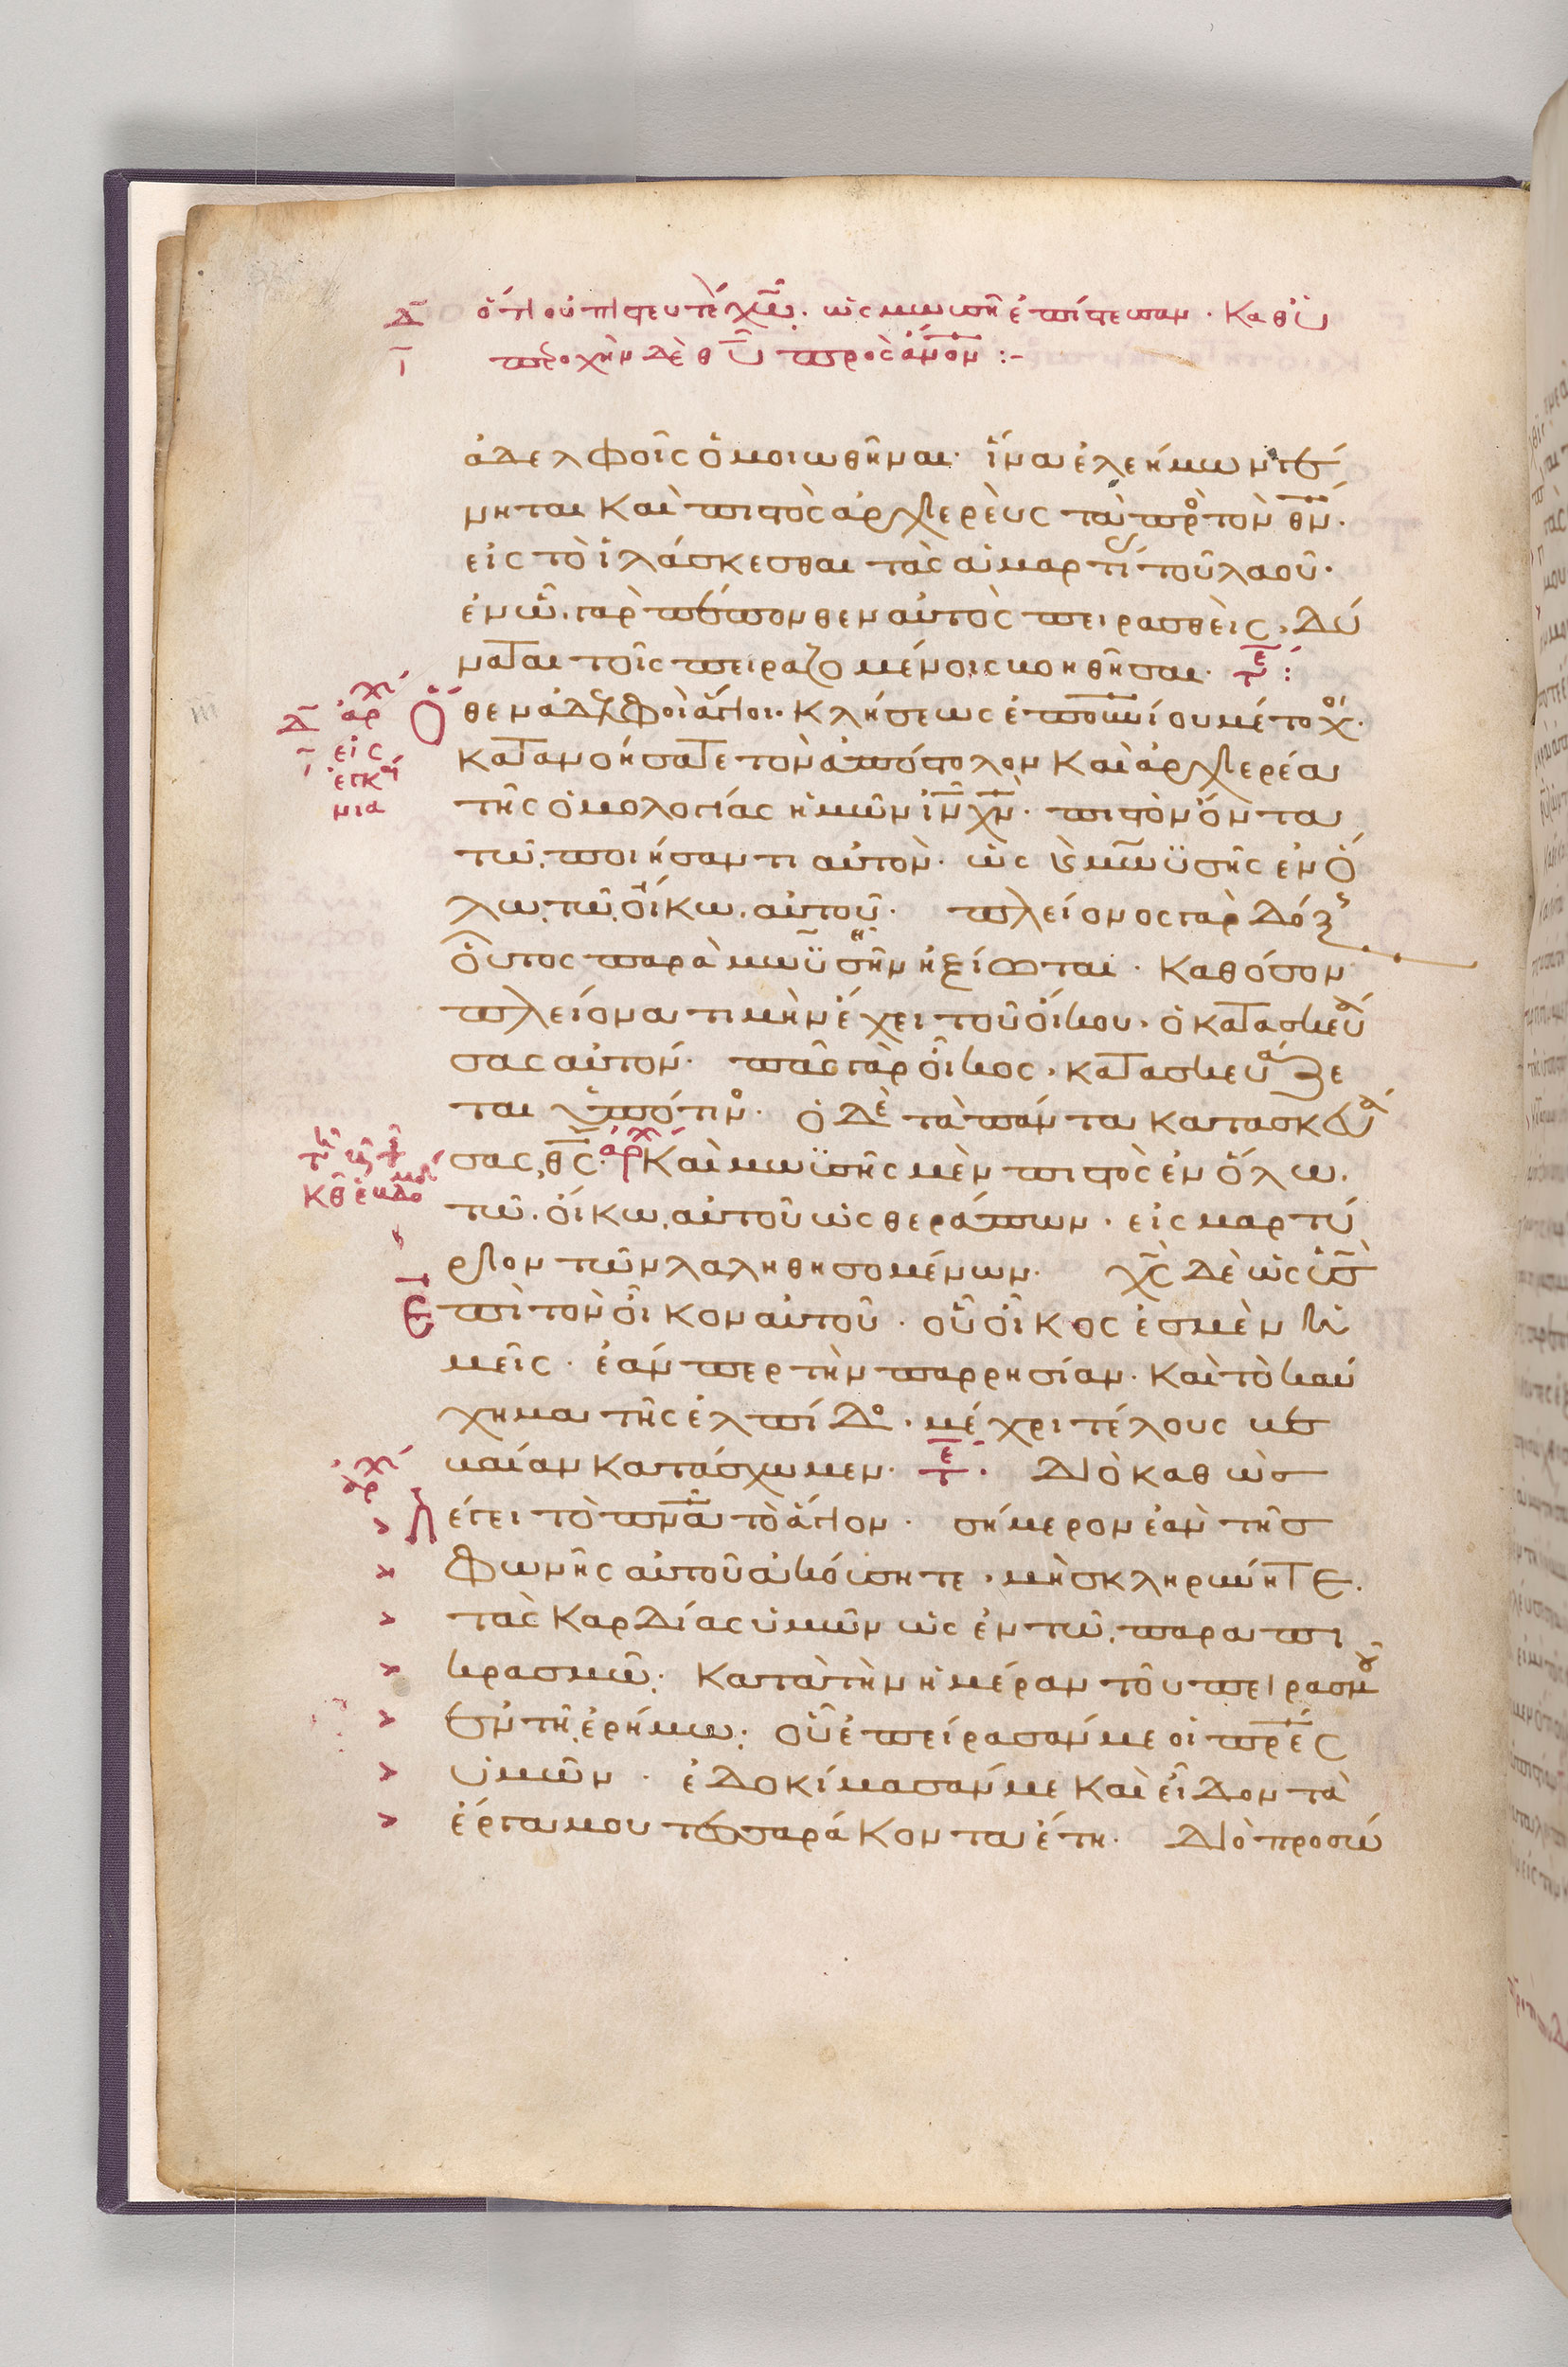 Δ ὅτι οὐ πιστευτέον χω. ὡς μωυσῆ ἐπίστευσαν. καθ ὑ
περοχὴν δὲ θυ πρὸς ἀνον :-
ἀδελφοῖς ὁμοιωθῆναι· ἵνα ἐλεήμων γέ
νηται καὶ πιστὸς ἀρχιερεὺς τὰ πρὸς τὸν θν·
εἰς τὸ ἱλάσκεσθαι τὰς ἁμαρτίας τοῦ λαοῦ·
ἐν ᾧ γὰρ πέπονθεν αὐτὸς πειρασθεὶς, δύ
ναται τοῖς πειραζομένοις βοηθῆσαι· τε :
Ὅθεν ἀδελφοὶ ἅγιοι· κλήσεως ἐπουνίου μέτοχοι·
ἀρχ
εἰς
ἐγκαί
νια
κατανοήσατε τὸν ἀπόστολον καὶ ἀρχιερέα
τῆς ὁμολογίας ἡμῶν ιν χν· πιστὸν ὄντα
τῷ ποιήσαντι αὐτὸν· ὡς καὶ μωϋσῆς ἐν ὅ
λω τῶ οἴκω αὐτοῦ· πλείονος γὰρ δόξης
οὗτος παρὰ μωϋσῆν ἠξίωται· καθ ὅσον
πλείονα τιμὴν ἔχει τοῦ οἴκου· ὁ κατασκευά
σας αὐτόν· πᾶς γὰρ οἶκος, κατασκευάζε
ται ὑπό τινος· ὁ δὲ τὰ πάντα κατασκευά
σας, θς· ἀρχ καὶ μωϋσῆς μὲν πιστὸς ἐν ὅλω
τῶ οἴκω αὐτοῦ ὡς θεράπων· εἰς μαρτύ
ριον τῶν λαληθησομένων· χς δὲ ὡς υς
ἐπὶ τὸν οἶκον αὐτοῦ· οὗ οἶκός ἐσμὲν ἡ
μεῖς· ἐάν περ τὴν παρρησίαν· καὶ τὸ καύ
χημα τῆς ἐλπίδος· μέχρι τέλους βε
βαίαν κατάσχωμεν· τε· Διὸ καθὼς
ἀρχ
λέγει τὸ πνα τὸ ἅγιον· σήμερον ἐὰν τῆς
φωνῆς αὐτοῦ ἀκούσητε· μὴ σκληρύνητε
τὰς καρδίας ὑμῶν ὡς ἐν τῶ παραπι
κρασμῶ· κατὰ τὴν ἡμέραν τοῦ πειρασμοῦ
ἐν τῆ ἐρήμω· οὗ ἐπείρασάν με οἱ πρες
ὑμῶν· ἐδοκίμασάν με καὶ εἶδον τὰ
ἔργα μου τεσσαράκοντα ἔτη· Διὸ προσώ